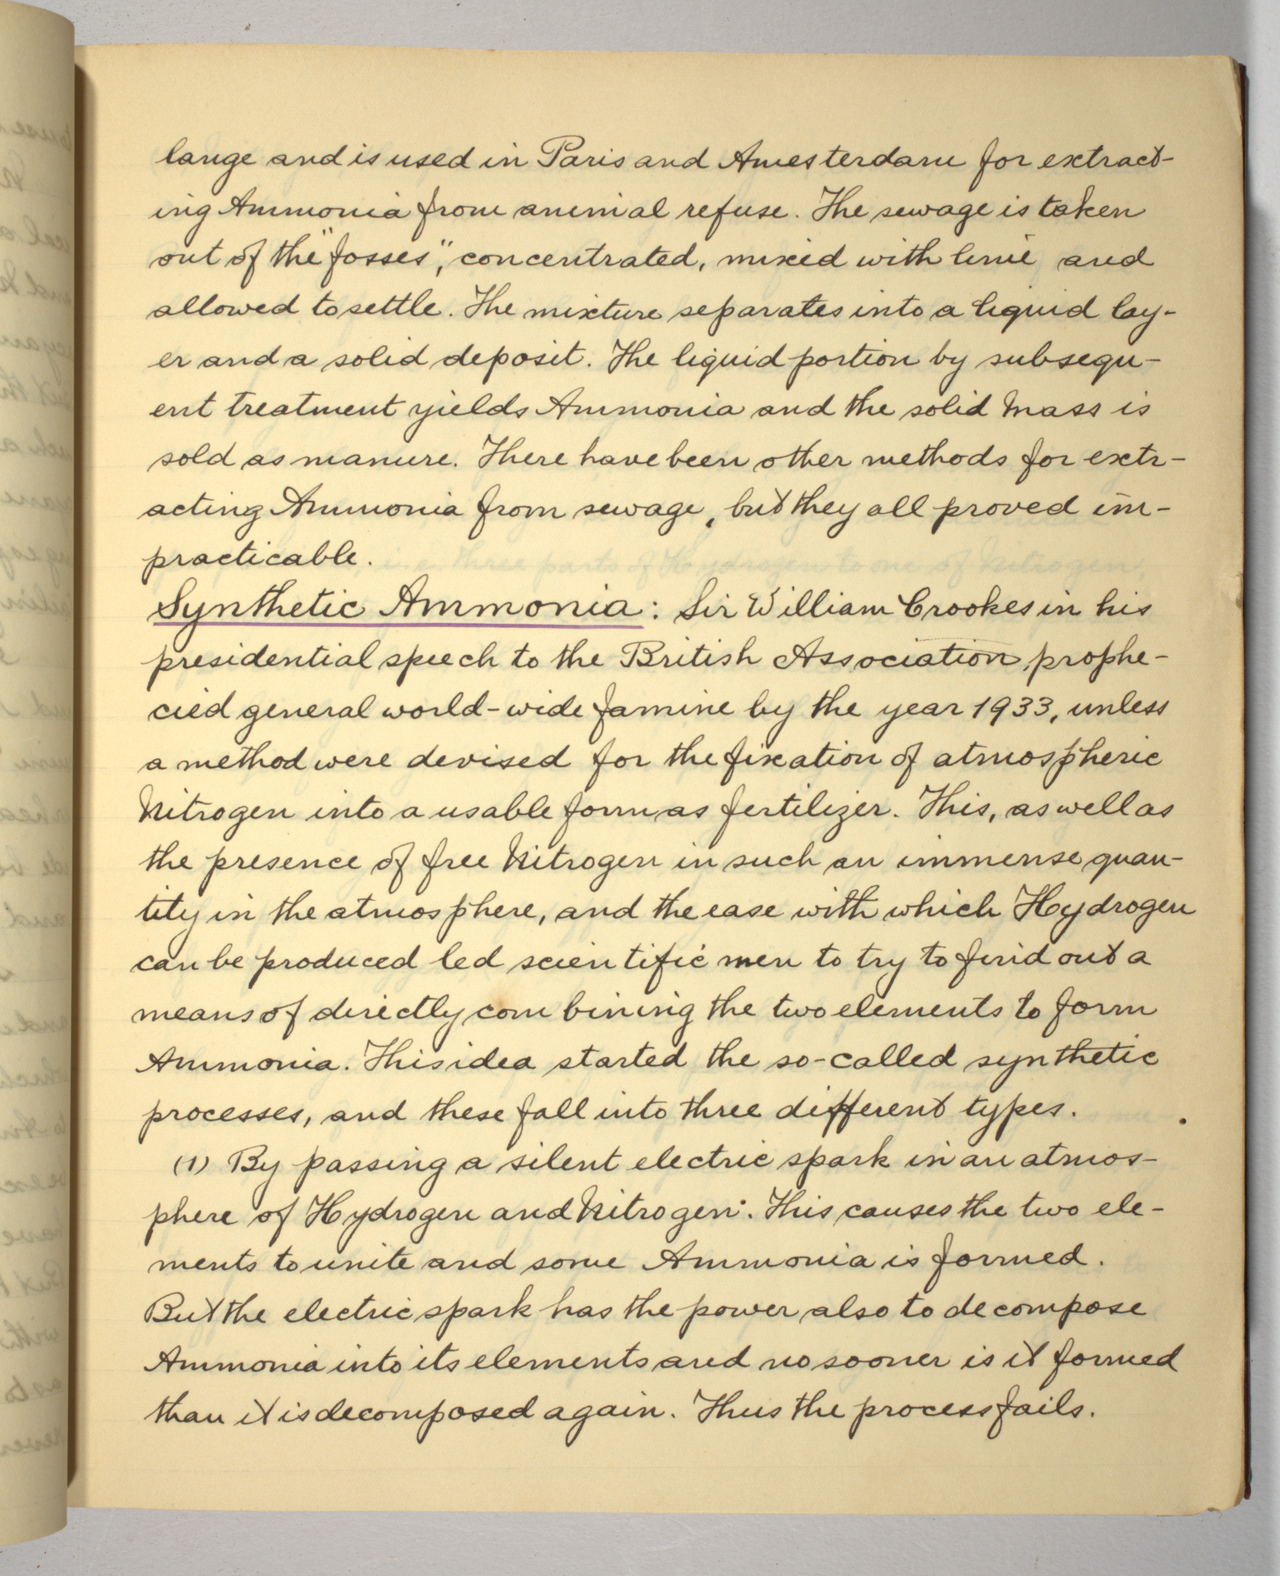 lange and is used in Paris and Amesterdam for extract-
ing Ammonia from animal refuse. The sewage is taken
out of the "fosses", concentrated, mixed with lime and
allowed to settle. The mixture separates into a liquid lay-
er and a solid deposit. The liquid portion by subsequ-
ent treatment yields Ammonia and the solid mass is
sold as manure. There have been other methods for extr-
acting Ammonia from sewage, but they all proved im-
practicable.
Synthetic Ammonia: Sir William Crookes in his
presidential speech to the British Association prophe-
cied general world-wide famine by the year 1933, unless
a method were devised for the fixation of atmospheric
Nitrogen into a usable form as fertilizer. This, as well as
the presence of free Nitrogen in such an immense quan-
tity in the atmosphere, and the ease with which Hydrogen
can be produced led scientific men to try to find out a
means of directly combining the two elements to form
Ammonia. This idea started the so-called synthetic
processes, and these fall into three different types.
(1) By passing a silent electric spark in an atmos-
phere of Hydrogen and Nitrogen:. This causes the two ele-
ments to unite and some Ammonia is formed.
But the electric spark has the power also to decompose
Ammonia into its elements and no sooner is it formed
than it is decomposed again. Thus the process fails.